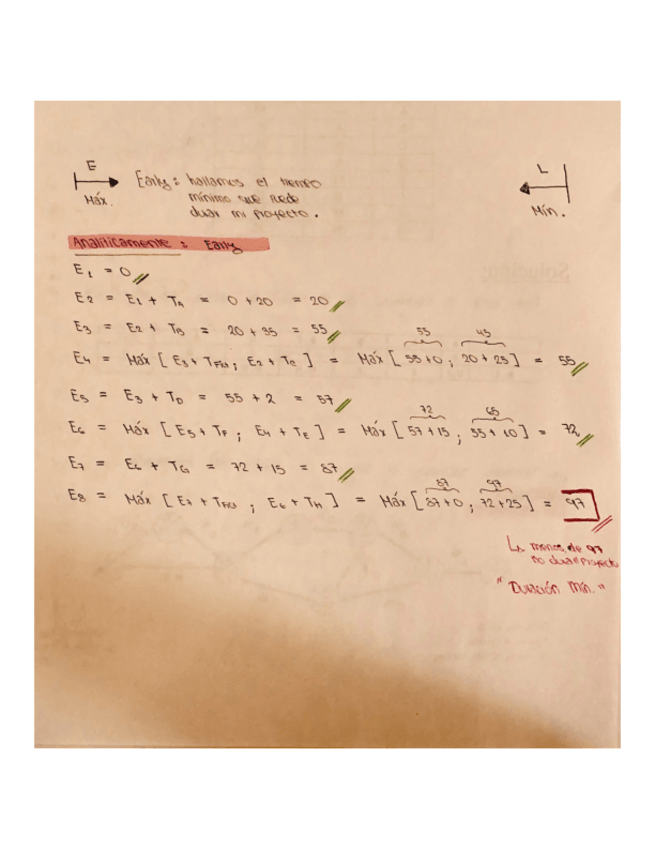 E
Máx.
Early: hallamos el tiempo
mínimo que puede
durar mi proyecto.
L
Mín.
Analíticamente: Early
E1 = 0
E2 = E1 + TA = 0 + 20 = 20
E3 = E2 + TB = 20 + 35 = 55
55 45
E4 = Máx [ E3 + TFic1 ; E2 + TC ] = Máx [ 55 + 0 ; 20 + 25 ] = 55
E5 = E3 + TD = 55 + 2 = 57
72 65
E6 = Máx [ E5 + TF ; E4 + TE ] = Máx [ 57 + 15 ; 55 + 10 ] = 72
E7 = E6 + TG = 72 + 15 = 87
87 97
E8 = Máx [ E7 + TFic2 ; E6 + TH ] = Máx [ 87 + 0 ; 72 + 25 ] = 97
↳ menos de 97
no dura el proyecto
"Duración Mín."
Solución: